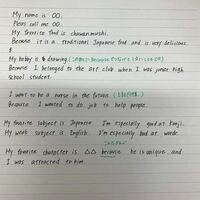 My name is OO.
Pleas call me OO.
My favorite food is chawanmushi.
Because it is a traditional Japanese food and is very delicious.
My hobby is drawing
Because I belonged to the art club when I was junior high
school student.
I want to be a nurse in the future.
Because I wanted to do job to help people.
My favorite subject is Japanese. I'm especially good at kanji.
My weak subject is English. I'm especially bad at words.
My favorite character is △△ because he is unique and
I was attracted to him.